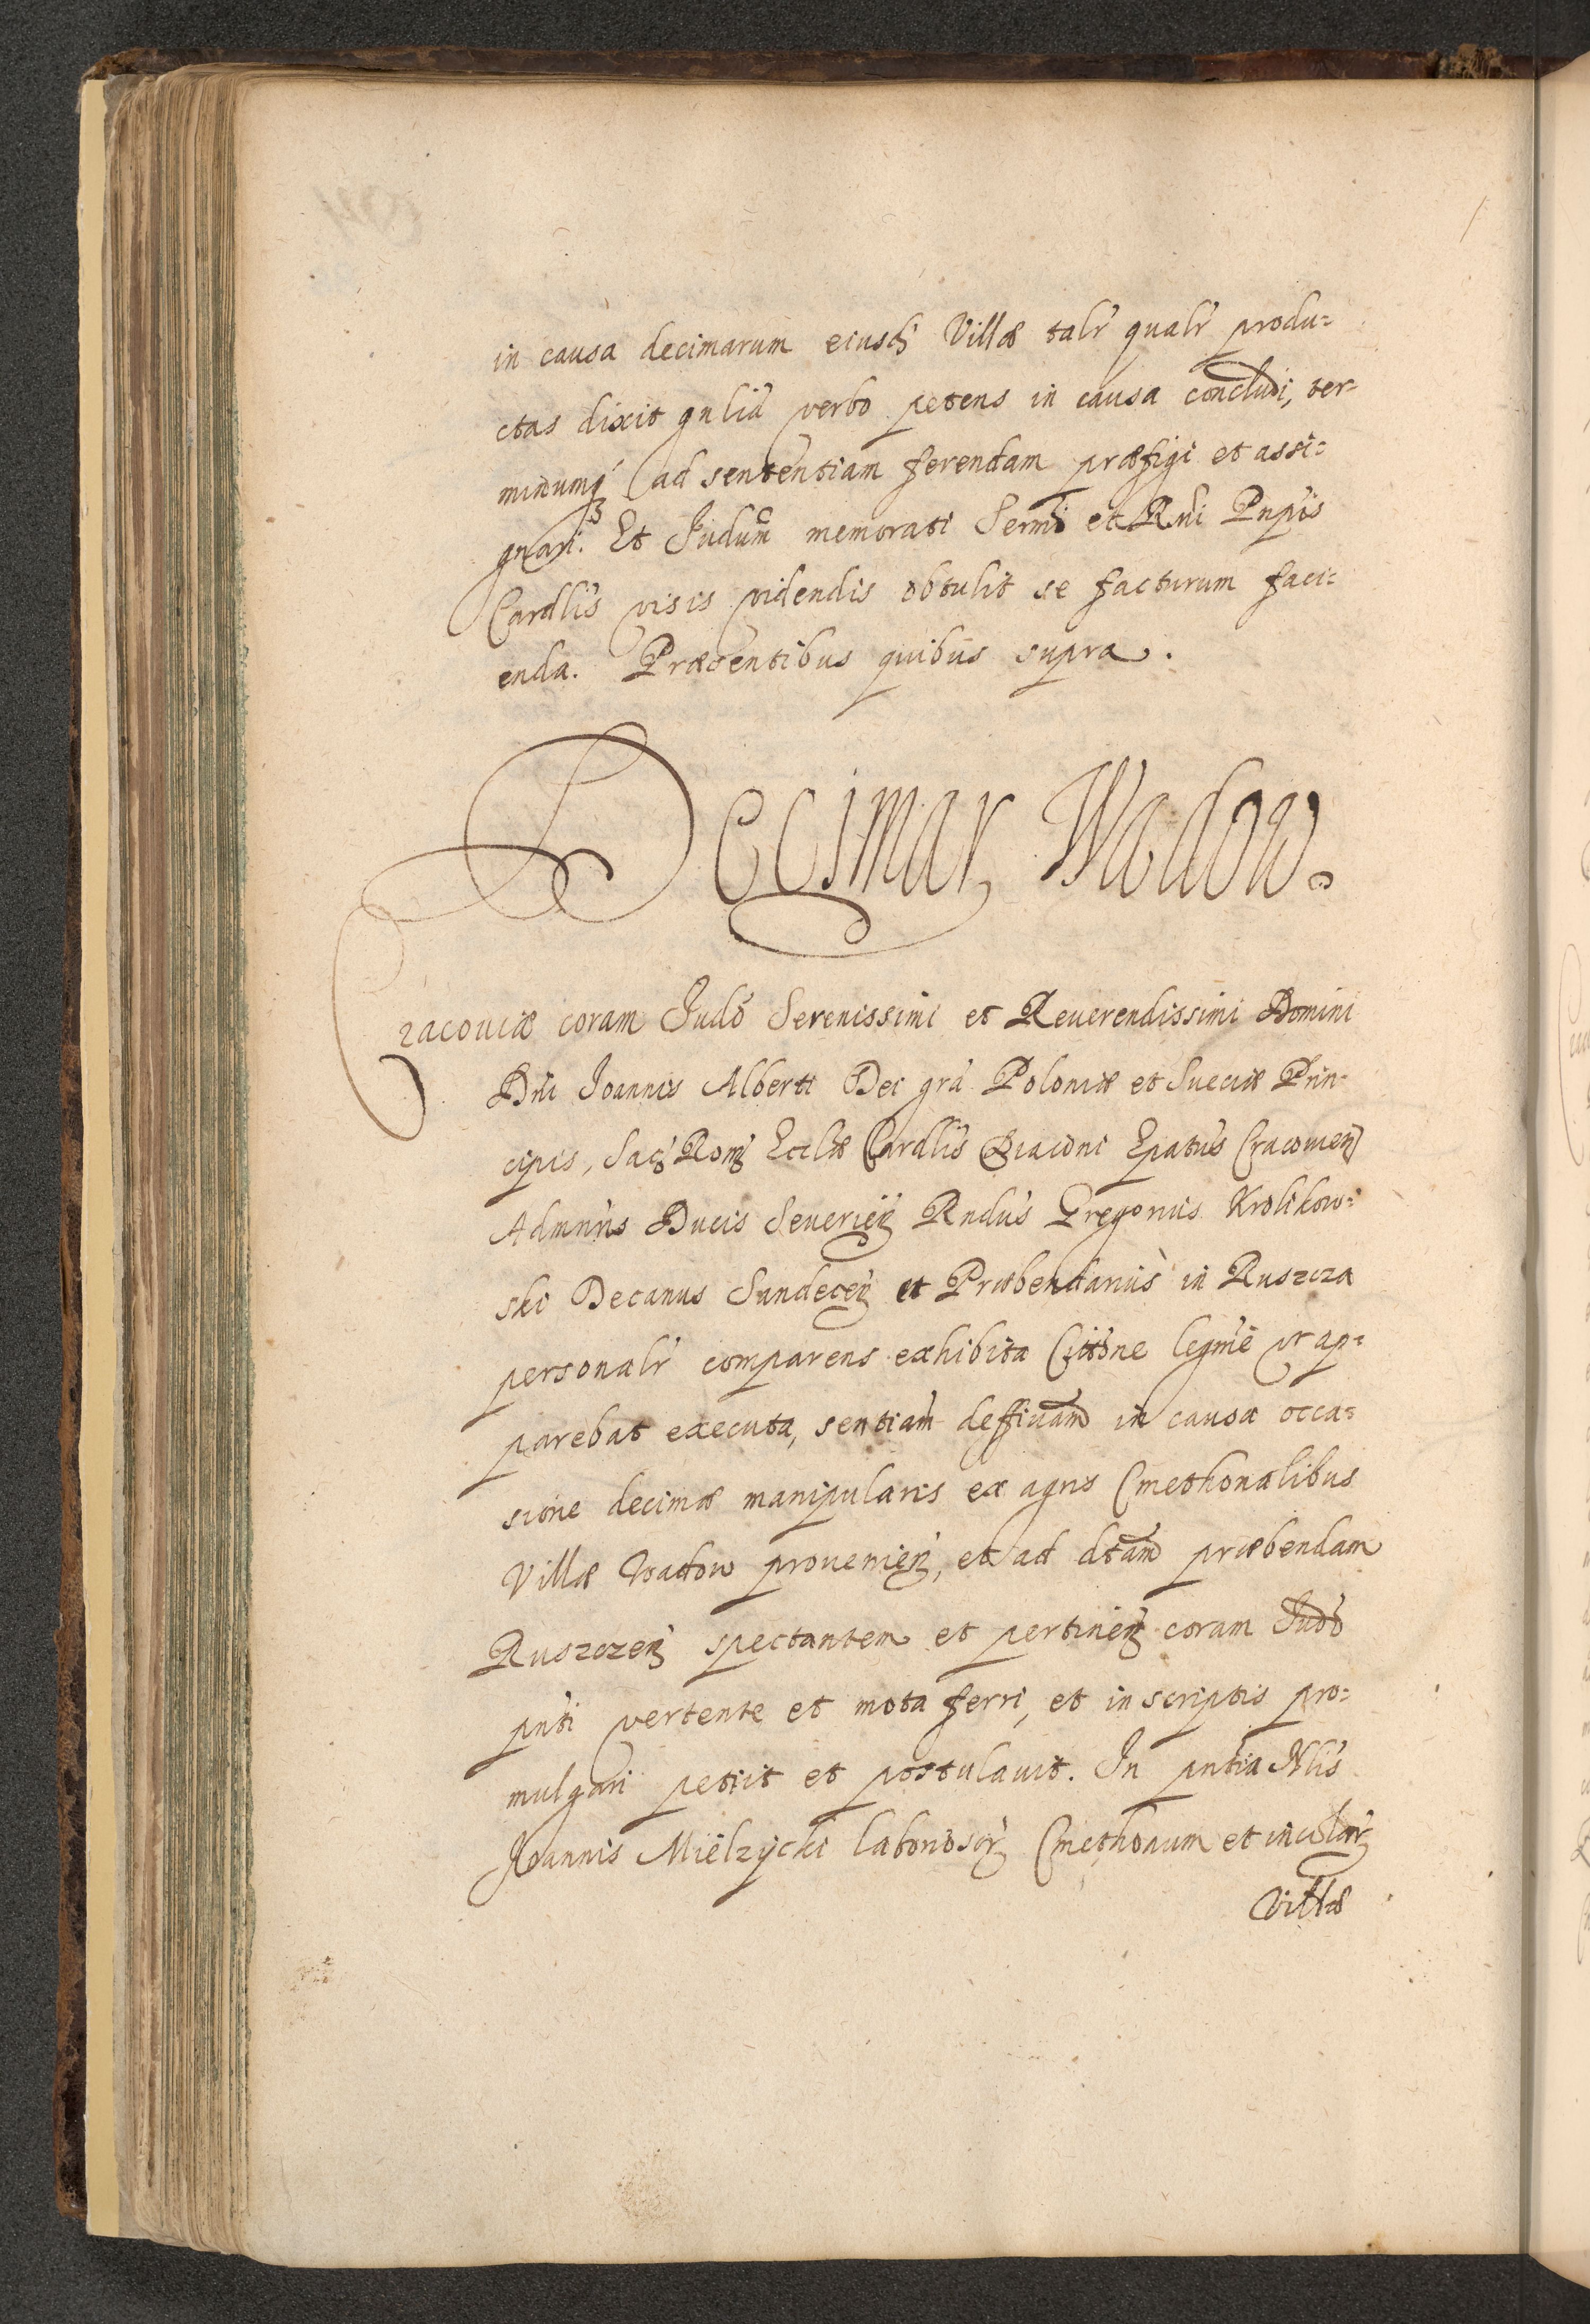 in causa decimarum eiusd Villæ talr qualr produ=
ctas dixit gnlia verbo petens in causa concludi, ter-
minumq ad sententiam ferendam præfigi et assi=
gnari. Et Judum memorati Sermi et Rmi Pnpis
Cardlis visis videndis obtulit se facturum faci=
enda. Præsentibus quibus supra.
Decimar Wadow.
Cracoviæ coram Judō Serenissimi et Reuerendissimi Domini
Dni Joannis Alberti Dei grā Poloniæ et Sueciæ Prin-
cipis, Sac Rom Eccliæ Cardlis Diaconi Epatus Cracovien
Admnris Ducis Severien Rndus Gregorius Krolikow=
ski Decanus Sandecen et Præbendarius in Ruszcza
personalr comparens exhibita Cittōne legmē vt ap=
parebat executa, sentiam deffiuam in causa occa=
sione decimæ manipularis ex agris Cmethonalibus
Villæ Wadow prouenien, et ad dtam præbendam
Ruszczen spectantem et pertinen coram Judō
pnti vertente et mota ferri, et in scriptis pro=
mulgari petiit et postulauit. In pntia Nlis
Joannis Mielzycki laboriosor Cmethonum et incolar
Villæ